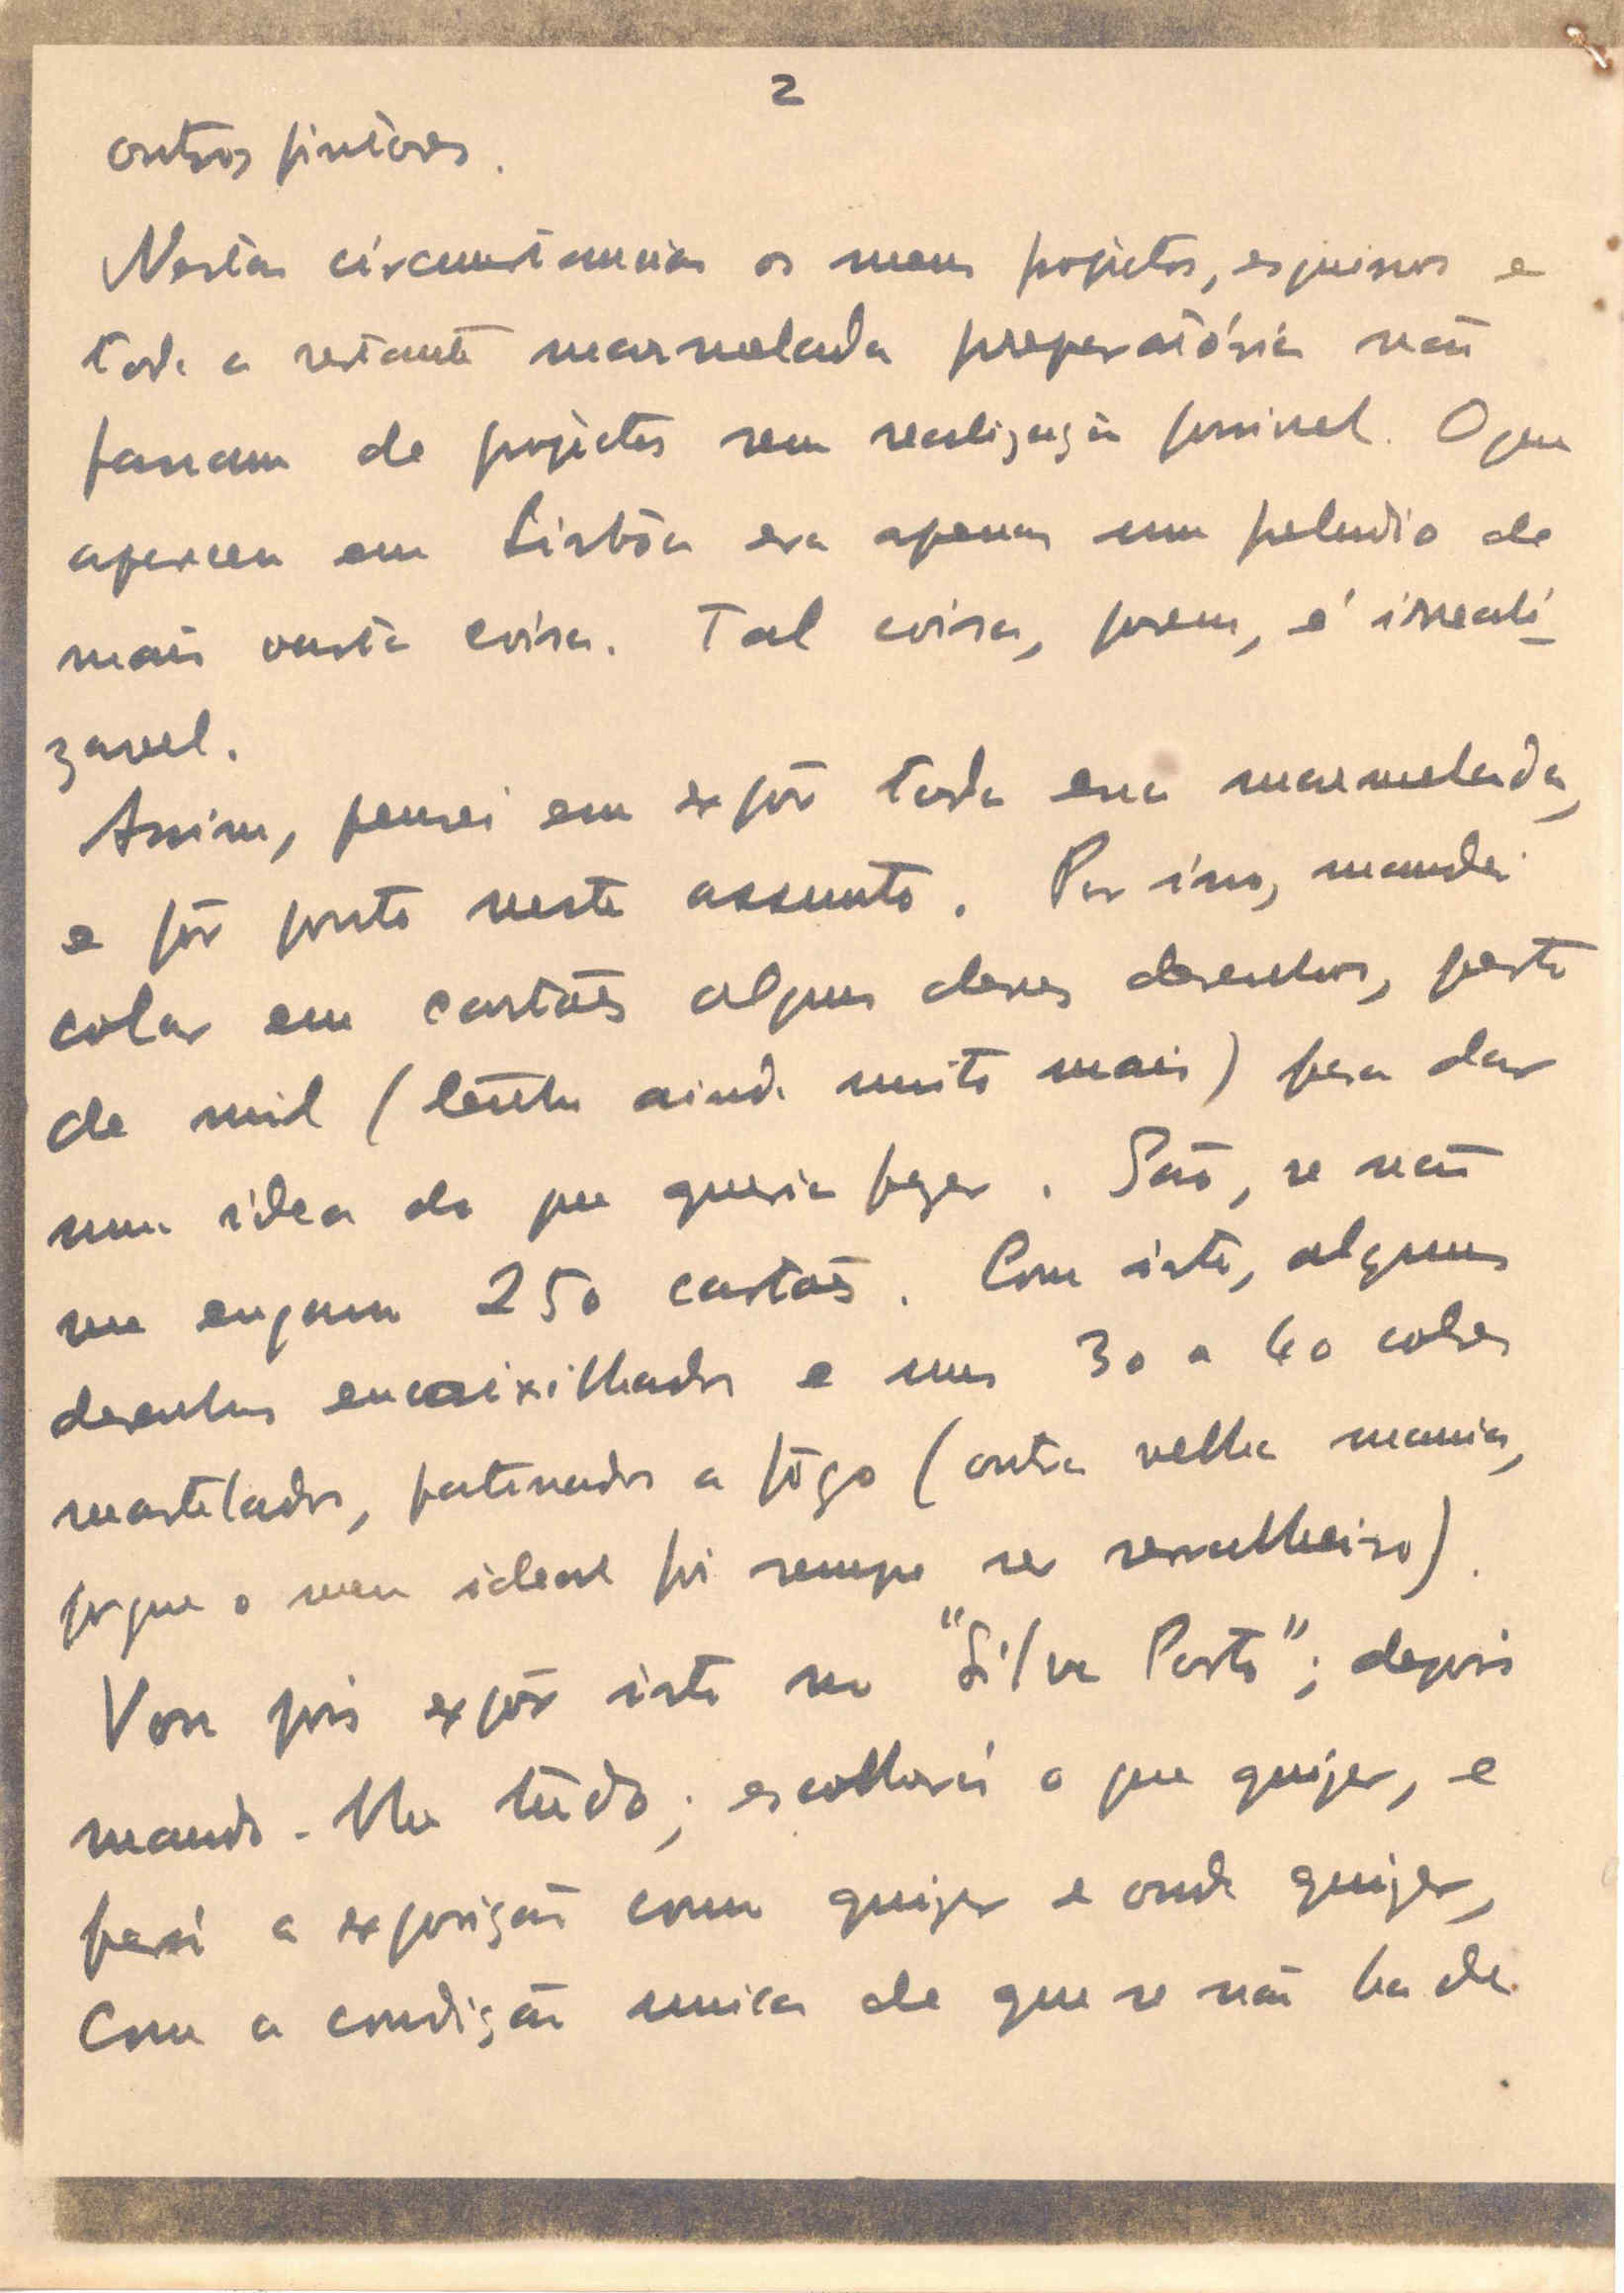 2
outros pintores.
Nestas circumstancias os meus projetos, esquissos e
toda a restante marmelada preparatória não
passam de projectos sem realização possivel. O que
apareceu em Lisbôa era apenas um preludio de
mais vasta coisa. Tal coisa, porem, é irreali-
zavel.
Assim, pensei em expôr toda essa marmelada,
e pôr ponto neste assunto. Por isso, mandei
colar em cartões alguns desses desenhos, perto
de mil (tenho ainda muito mais) para dar
uma idea do que queria fazer. São, se não
me engano 250 cartões. Com isto, alguns
desenhos encaixilhados e uns 30 a 40 cobres
martelados, patinados a fôgo (outra velha mania,
porque o meu ideal foi sempre ser serralheiro).
Vou pois expôr isto no "Silva Porto"; depois
mando-lhe tudo; escolherá o que quizer, e
fará a exposição como quizer e onde quizer,
com a condição unica de que se não ha de